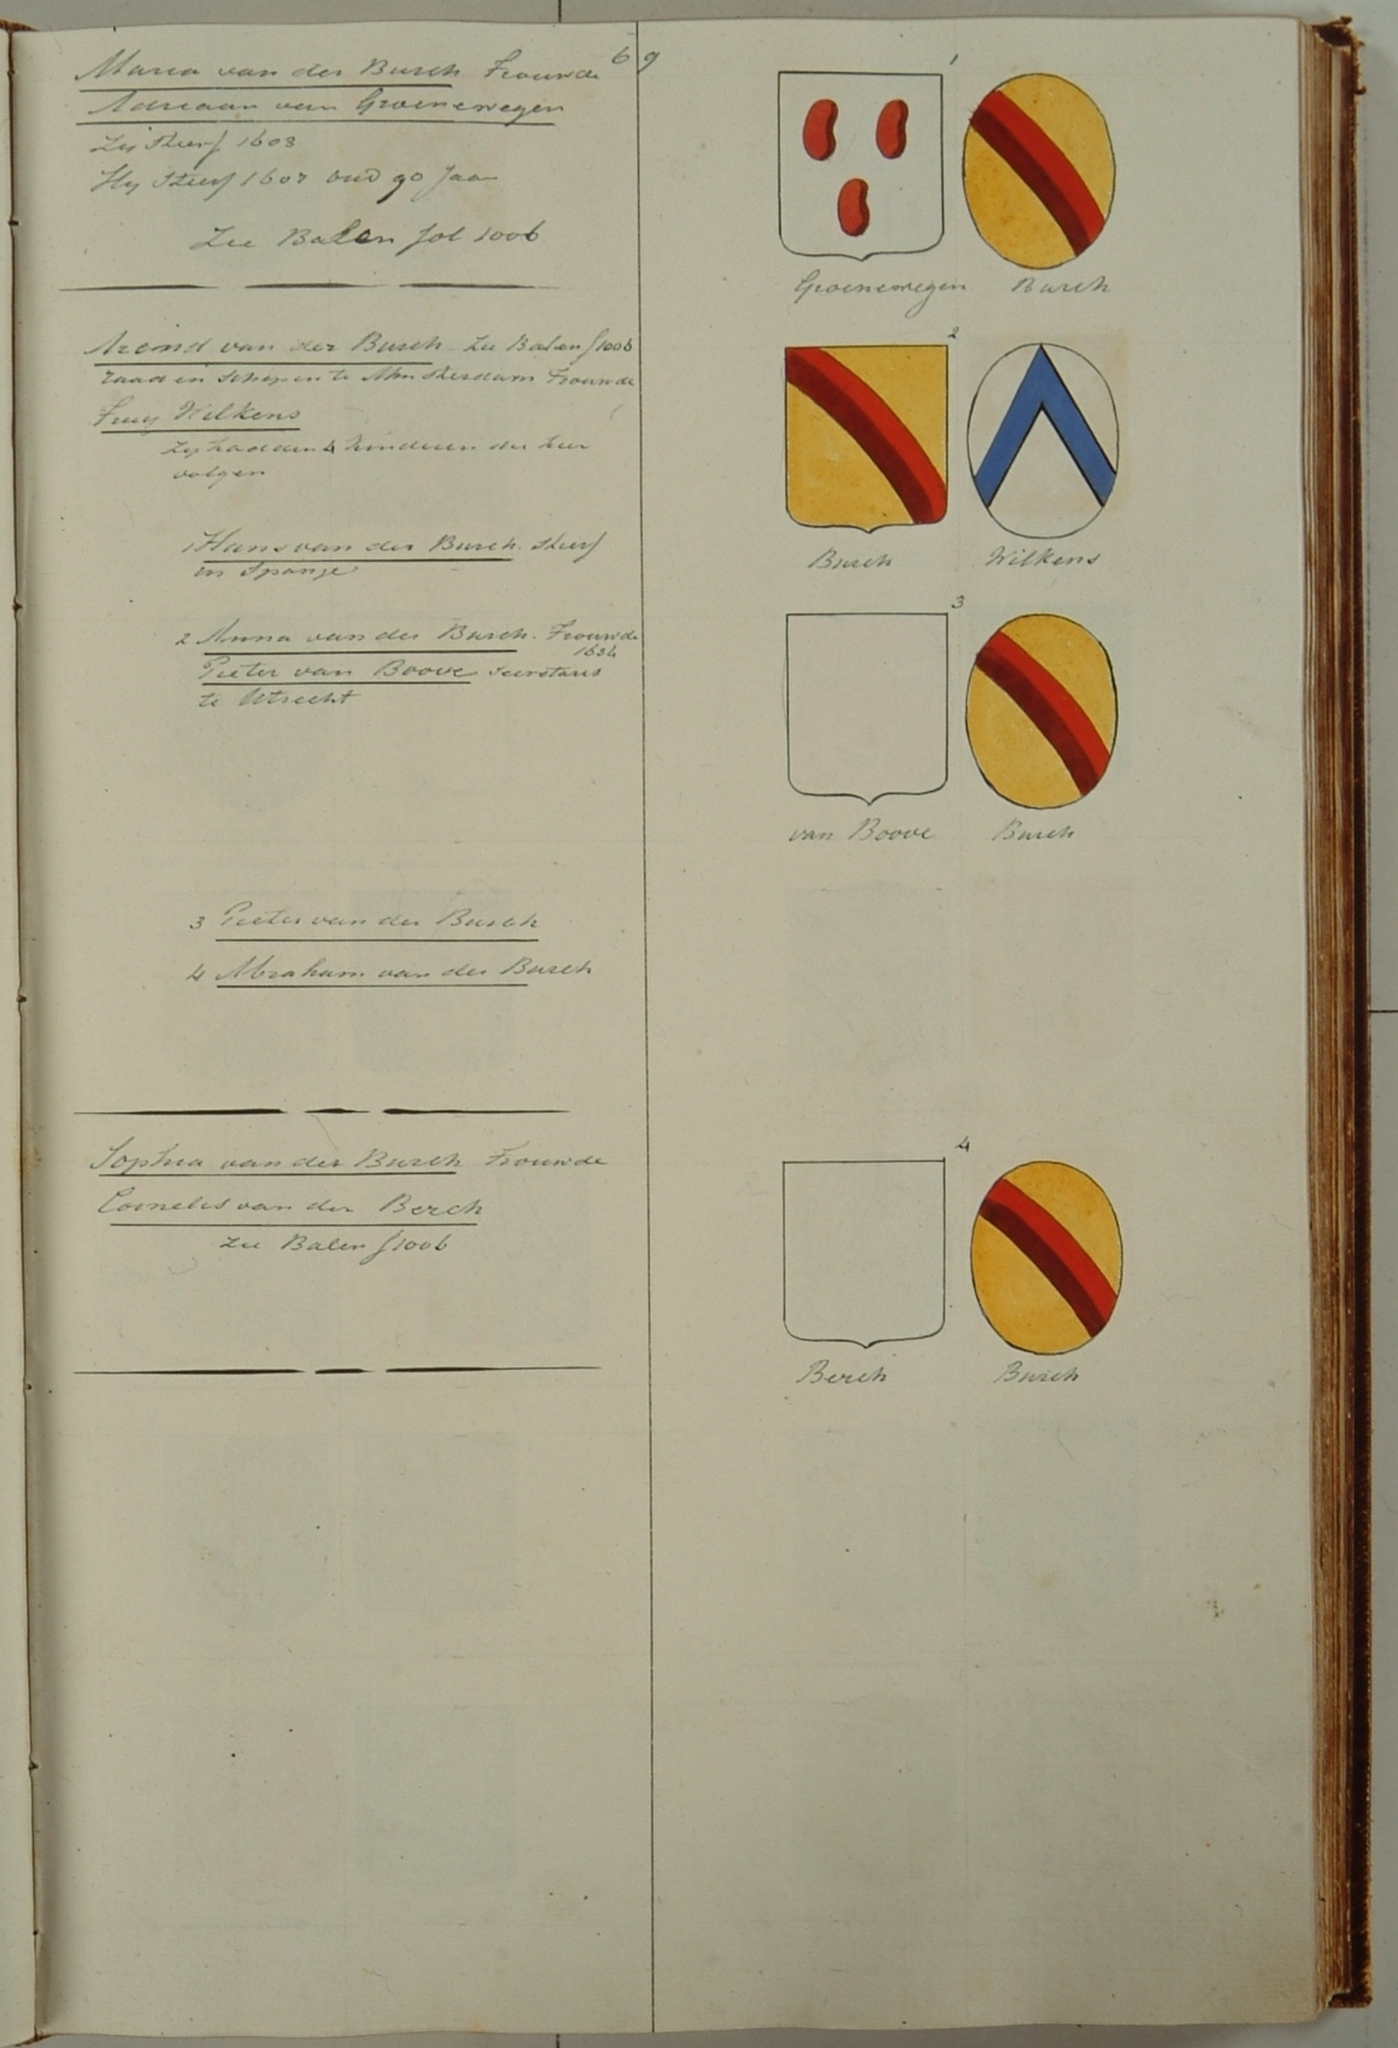 69
Maria van der Burch Trouwde
Adriaan van Groenewegen
Zij Sterf 1603
Hij Sterf 1607 oud 90 Jaar
Zie Balen fol 1006
1
Groenewegen Burch
Arend van der Burch Zie Balen f 1006
raad en schepen te Amsterdam Trouwde
Wilkens
Zij hadden 4 kinderen die hier
volgen
2
Burch Wilkens
1 Hans van der Burch. Sterf
in Spanje
2 Anna van der Burch. Trouwde
1634
Pieter van Boove Secretaris
te Utrecht
3
van Boove Burch
3 Pieter van der Burch
4 Abraham van der Burch
Sophia van der Burch Trouwde
Cornelis van der Berch
Zie Balen f 1006
4
Berch Burch